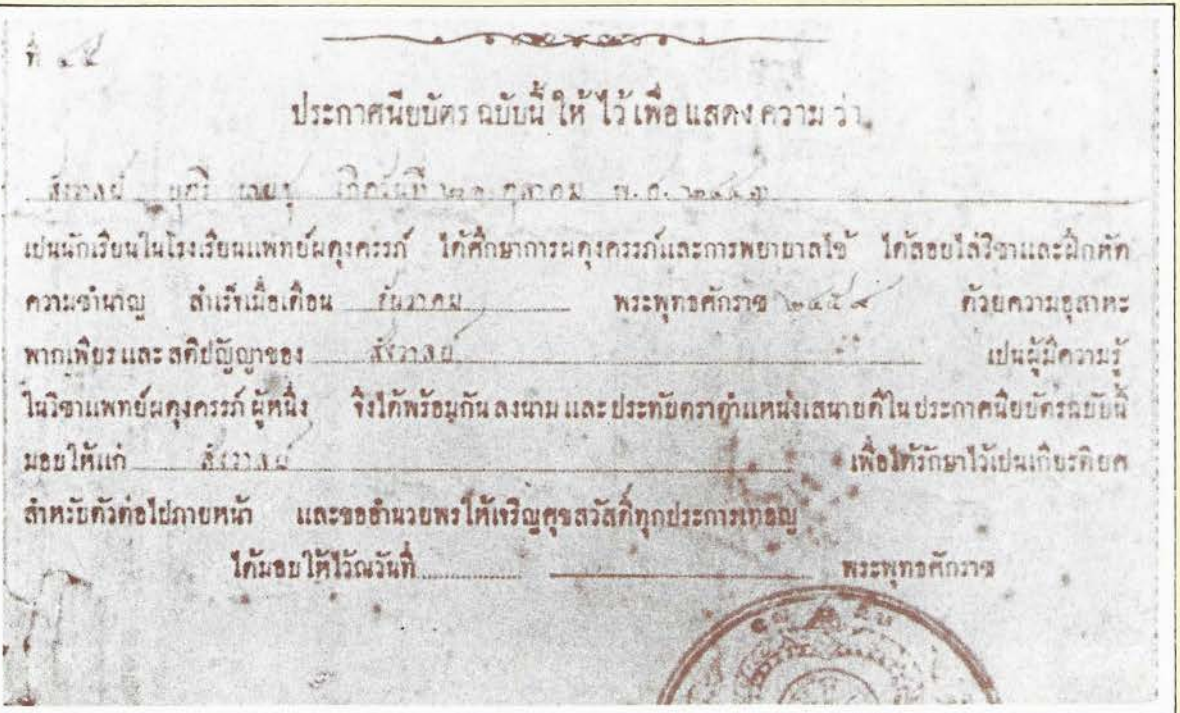 ที่ ๔๕
ประกาศนียบัตร ฉบับนี้ ให้ ไว้ เพื่อ แสดง ความ ว่า
สังวาลย์ บุตรี นายชู เกิดวันที่ ๒๑ ตุลาคม พ.ศ. ๒๔๔๓
เปนนักเรียนในโรงเรียนแพทย์ผดุงครรภ์ ได้ศึกษาการผดุงครรภ์และการพยาบาลไข้ ได้สอบไล่วิชาและฝึกหัด
ความชำนาญ สำเร็จเมื่อเดือน ธันวาคม พระพุทธศักราช ๒๔๕๙ ด้วยความอุสาหะ
พากเพียร และ สติปัญญาของ สังวาลย์ เปนผู้มีความรู้
ในวิชาแพทย์ผดุงครรภ์ ผู้หนึ่ง จึงได้พร้อมกัน ลงนาม และ ประทับตราตำแหน่งเสนาบดีในประกาศนียบัตรฉบับนี้
มอบให้แก่ สังวาลย์ เพื่อได้รักษาไว้เปนเกียรติยศ
สำหรับตัวต่อไปภายหน้า และขออำนวยพรให้เจริญศุขสวัสดิ์ทุกประการเทอญ
ได้มอบให้ไว้ณวันที่ พระพุทธศักราช